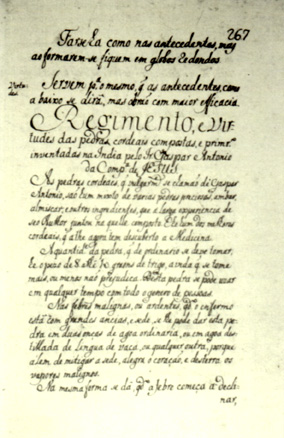 267
Farse ha como nas antecedentes, mas
ao formarem-se fiquem em globos redondos
Virtu-
des
Servem pa. o mesmo, q as antecedentes, como
a baixo se dirà, mas obraõ com maior efficacia.
Regimento, e Vir-
tudes das pedras cordeais compostas, e primro.
inventadas na India pelo Ir. Gaspar Antonio
da Compa. de JESUS
As pedras cordeais, q vulgarmte. se chamaõ de Gaspar
Antonio, saõ hum mixto de varias pedras preciosas, ambar,
almiscar, e outros ingredientes, que a larga experiencia de
seu Author ajuntou na quella composta. He hum dos melhores
cordeais, q athe agora tem descuberto a Medicina.
A quantide. da pedra, q de ordinario se deve tomar,
he o pezo de 8 athe graons de trigo, ainda q se tome
mais, ou menos naõ prejudica. Desta pedra se pode uzar
em qualquer tempo com todo o genero de pessoas.
Nas febres malignas, ou ardentes, qdo. o enfermo
està com grandes ancias, e sede, se lhe pode dar esta pe-
dra em duas onças de agoa ordenaria, ou em agoa des-
tillada de lingua de vaca, ou qualquer outra, porque
alem de mitigar a sede, alegra o coraçaõ, e desterra os
vapores malignos.
Na mesma forma se dà, qdo. a febre começa a decli-
nar,